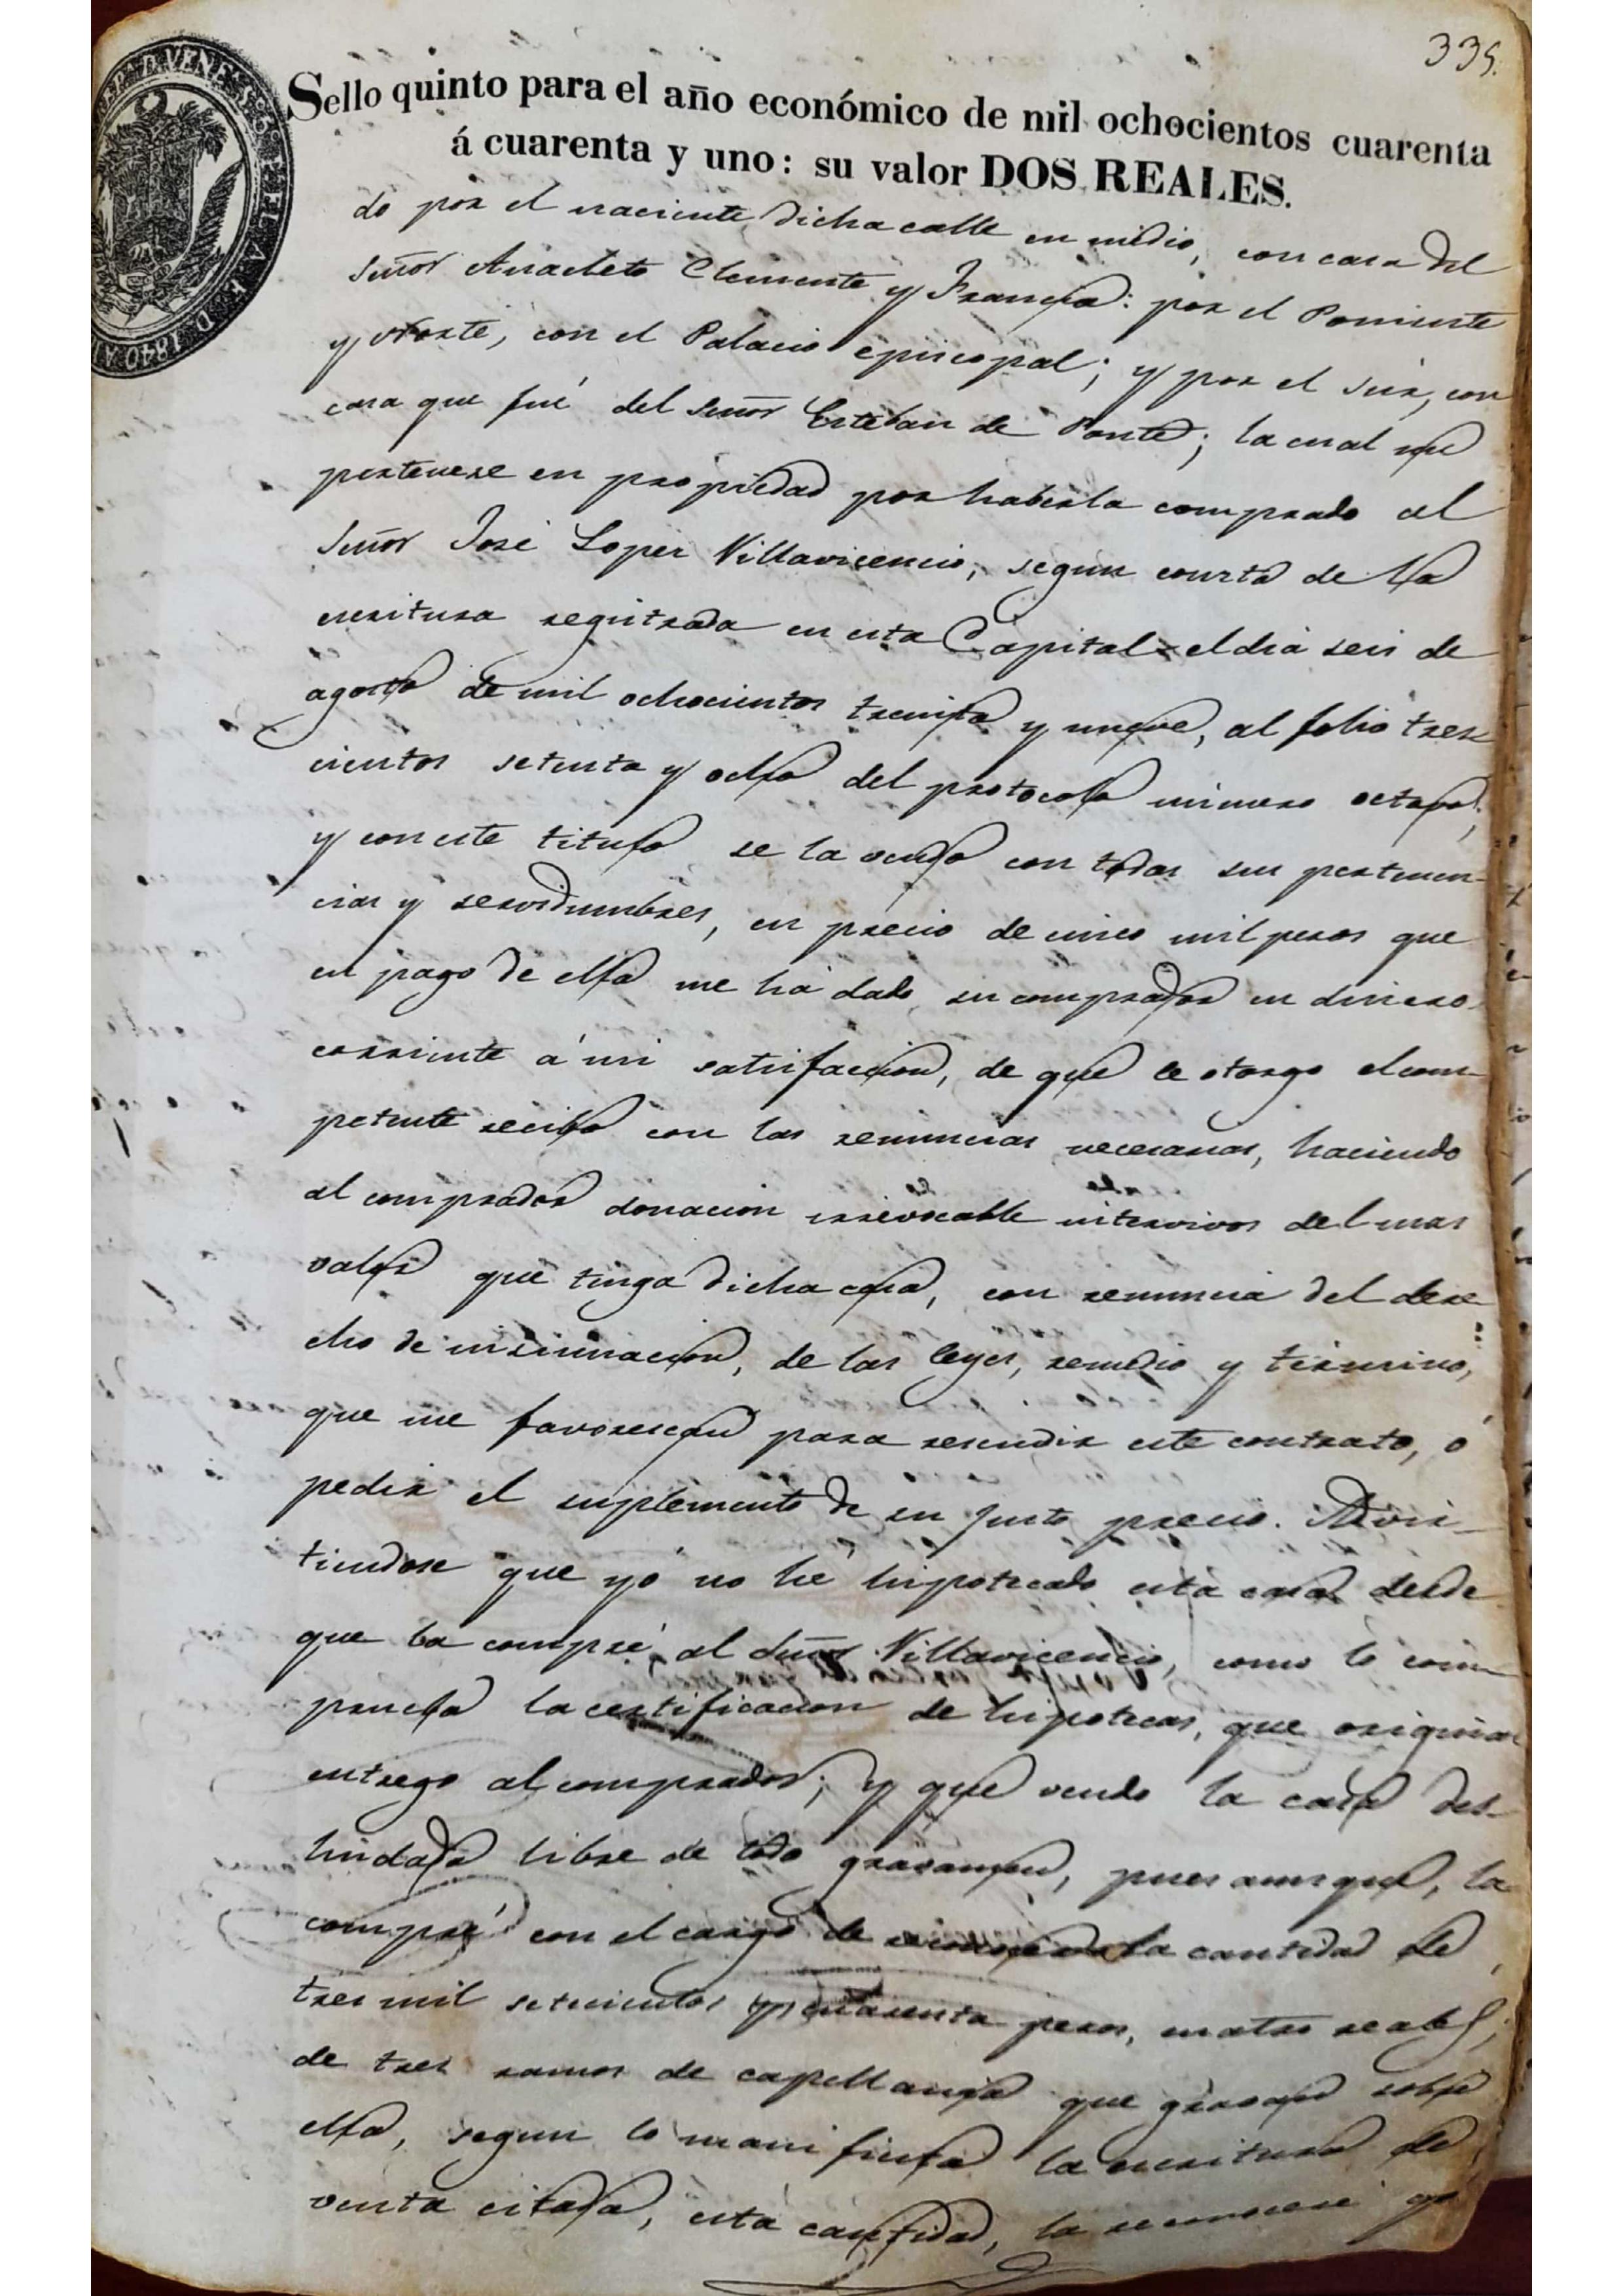 335.
Sello quinto para el año económico de mil ochocientos cuarenta
á cuarenta y uno: su valor DOS REALES.
do por el naciente dicha calle en medio, con casa del
Señor Anacleto Clemente y Francia: por el Poniente
y Norte, con el Palacio episcopal; y por el Sur, con
casa que fué del Señor Esteban de Ponte; la cual me
pertenese en propiedad por haberla comprado al
Señor José Lopez Villavicencio, segun consta de la
escritura registrada en esta Capital el dia seis de
agosto de mil ochocientos treinta y nueve, al folio tres
cientos setenta y ocho del protocolo número octavo;
y con este titulo se la vendo con todas sus pertenen-
cias y servidumbres, en precio de cinco mil pesos que
en pago de ella me há dado su comprador en dinero
corriente á mi satisfaccion, de que le otorgo el com-
petente recibo con las renuncias necesarias, haciendo
al comprador donacion irrevocable intervivos del mas
valor que tenga dicha casa, con renuncia del dere-
cho de insinuacion, de las leyes, remedio y término,
que me favorescan para rescindir este contrato, ó
pedir el suplemento de su justo precio. Advir-
tiendose que yó no hé hipotecado esta casa desde
que la compré al Señor Villavicencio, como lo com-
prueba la certificacion de hipotecas, que original
entrego al comprador; y que vendo la casa des-
lindada libre de todo gravamen, pues aunque, la
compré con el cargo de reconocer la cantidad de
tres mil setecientos cuarenta pesos, cuatro reales,
de tres ramos de capellanía que gravan sobre
ella, segun lo manifiesta la escritura de
venta citada, esta cantidad, la reconoceré yo